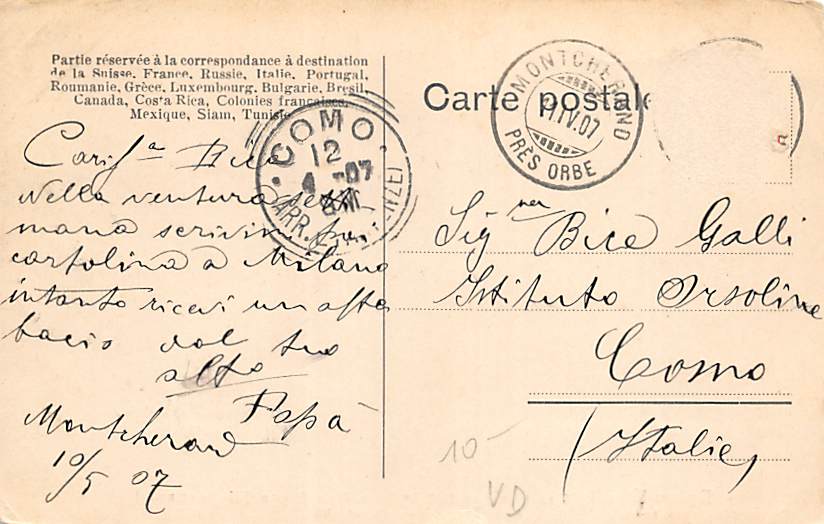 Partie réservée à la correspondance à destination
de la Suisse, France, Russie, Italie, Portugal,
Roumanie, Grèce, Luxembourg, Bulgarie, Brésil,
Canada, Costa Rica, Colonies françaises,
Mexique, Siam, Tunisie
Cariss.a Bice
nella ventura setti
mana scrivimi
cartolina a Milano
intanto ricevi un
bacio dal tuo
Papà
Montcherand
10/5 07
COMO
12
4 -07
ARR.
Carte postale
MONTCHERAND
11 IV.07
PRÈS ORBE
Sig.na Bice Galli
Istituto Orsoline
Como
(Italie)
10-
VD